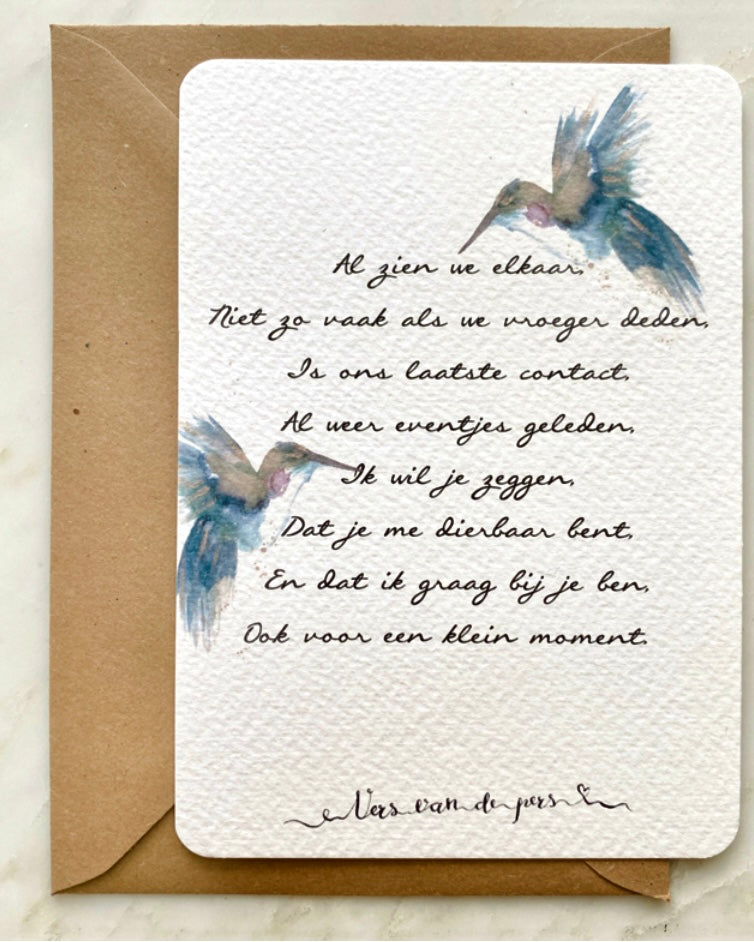 Al zien we elkaar,
Niet zo vaak als we vroeger deden,
Is ons laatste contact,
Al weer eventjes geleden,
Ik wil je zeggen,
Dat je me dierbaar bent,
En dat ik graag bij je ben,
Ook voor een klein moment.
Vers van de pers